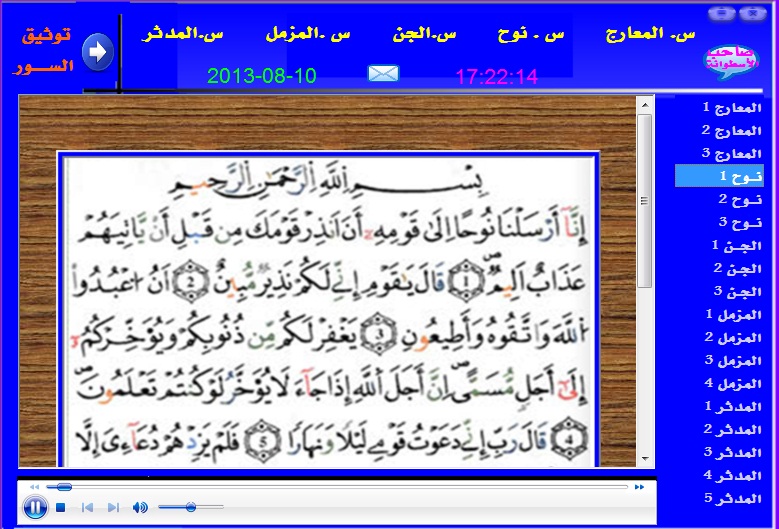 توثيق
الســور
س. المعارج
س . نوح
س.الجن
س .المزمل
س.المدثر
صاحب
الأسطوانة
2013-08-10
17:22:14
المعارج 1
المعارج 2
المعارج 3
نـوح 1
نـوح 2
نـوح 3
الجـن 1
الجـن 2
الجـن 3
المزمل 1
المزمل 2
المزمل 3
المزمل 4
المدثر 1
المدثر 2
المدثر 3
المدثر 4
المدثر 5
بِسْمِ اِللَّهِ اِلرَّحْمَٰنِ اِلرَّحِيمِ
إِنَّآ أَرْسَلْنَا نُوحًا إِلَىٰ قَوْمِهِۦٓ أَنَ اَنذِرْ قَوْمَكَ مِن قَبْلِ أَنْ يَّاتِيَهُمْ
عَذَابٌ اَلِيمٌ 1 قَالَ يَٰقَوْمِ إِنِّے لَكُمْ نَذِيرٌ مُّبِينٌ 2 اَنُ اُعْبُدُواْ
اُللَّهَ وَاتَّقُوهُ وَأَطِيعُونِ 3 يَغْفِرْ لَكُم مِّن ذُنُوبِكُمْ وَيُؤَخِّرْكُمُۥٓ
إِلَىٰٓ أَجَلٖ مُّسَمًّى اِنَّ أَجَلَ اَللَّهِ إِذَا جَآءَ لَا يُؤَخَّرُ لَوْ كُنتُمْ تَعْلَمُونَ
4 قَالَ رَبِّ إِنِّے دَعَوْتُ قَوْمِے لَيْلًا وَنَهَارًا 5 فَلَمْ يَزِدْهُمْ دُعَآءِىَ إِلَّا